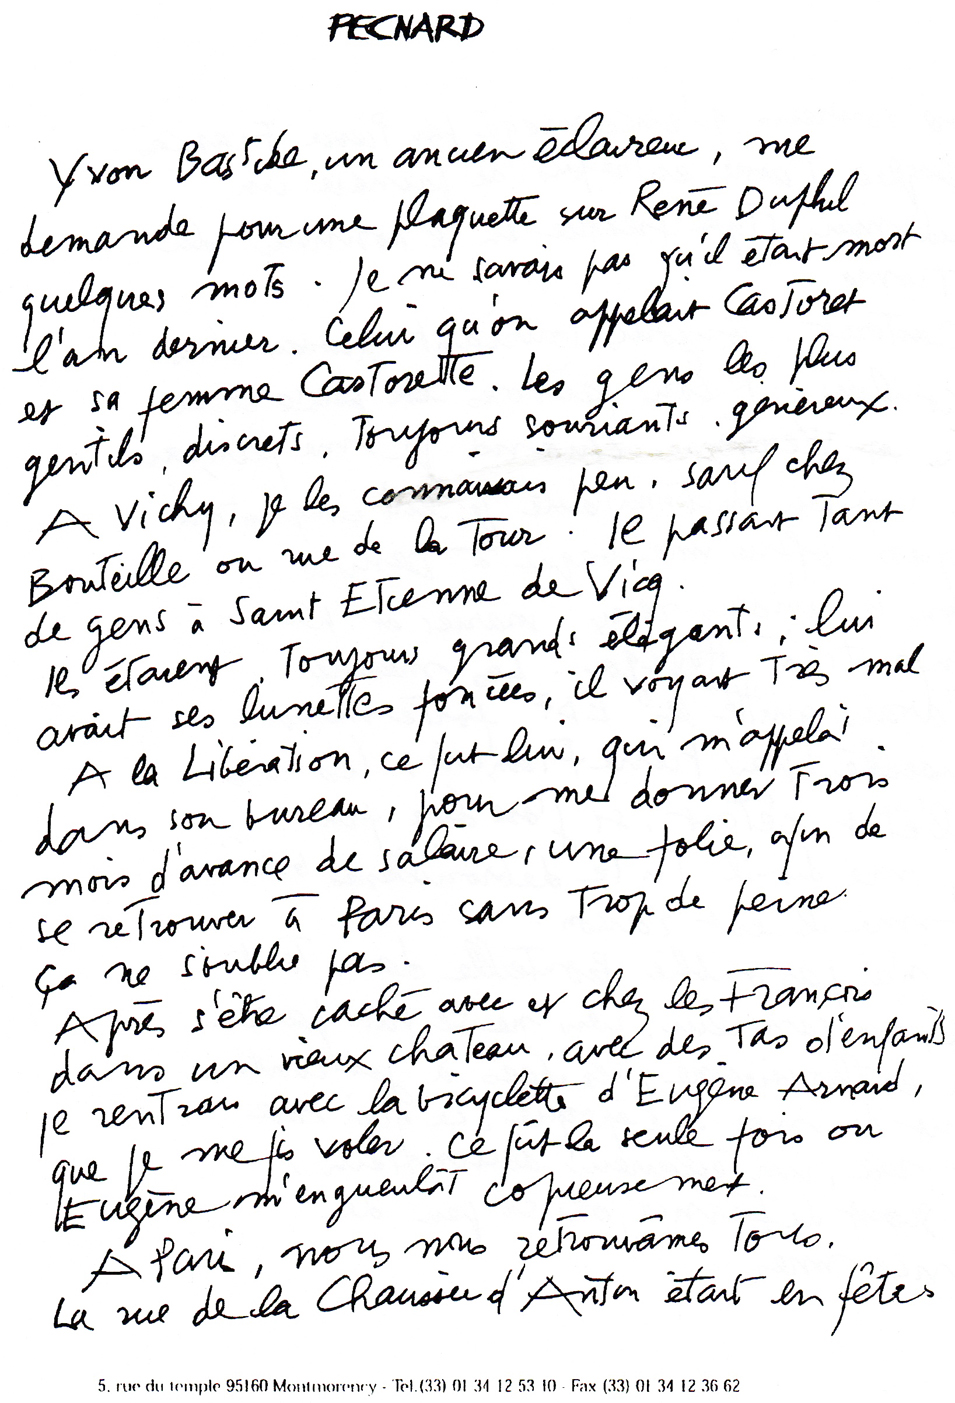 PECNARD
Yvon Bastide, un ancien éclaireur, me
demande pour une plaquette sur René Duphil
quelques mots. Je ne savais pas qu'il était mort
l'an dernier. Celui qu'on appelait Castoret
et sa femme Castorette. Les gens les plus
gentils, discrets, Toujours souriants, généreux.
A Vichy, je les connaissais peu, sauf chez
Bouteille ou rue de la Tour. Il passait Tant
de gens à Saint Etienne de Vicq.
Ils étaient, Toujours grands élégants ; lui
avait ses lunettes foncées, il voyait Très mal
A la Libération, ce fut lui, qui m'appela
dans son bureau, pour me donner Trois
mois d'avance de salaire, une folie, afin de
se retrouver à Paris sans Trop de peine.
ça ne s'oublie pas.
Après s'être caché avec et chez les François
dans un vieux chateau, avec des Tas d'enfants
je rentrais avec la bicyclette d'Eugène Arnaud,
que je me fis voler. Ce fut la seule fois ou
Eugène m'engueulât copieusement.
A Paris, nous nous retrouvâmes Tous.
La rue de la Chaussée d'Antin était en fêtes
5, rue du temple 95160 Montmorency - Tel.(33) 01 34 12 53 10 - Fax (33) 01 34 12 36 62